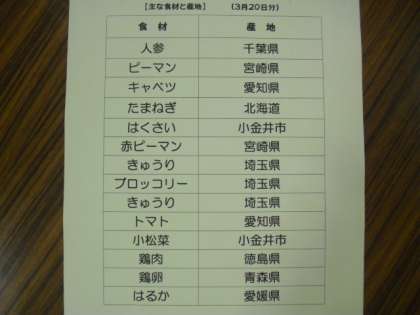 【主な食材と産地】 (3月20日分)
食 材 産 地
人参 千葉県
ピーマン 宮崎県
キャベツ 愛知県
たまねぎ 北海道
はくさい 小金井市
赤ピーマン 宮崎県
きゅうり 埼玉県
ブロッコリー 埼玉県
きゅうり 埼玉県
トマト 愛知県
小松菜 小金井市
鶏肉 徳島県
鶏卵 青森県
はるか 愛媛県